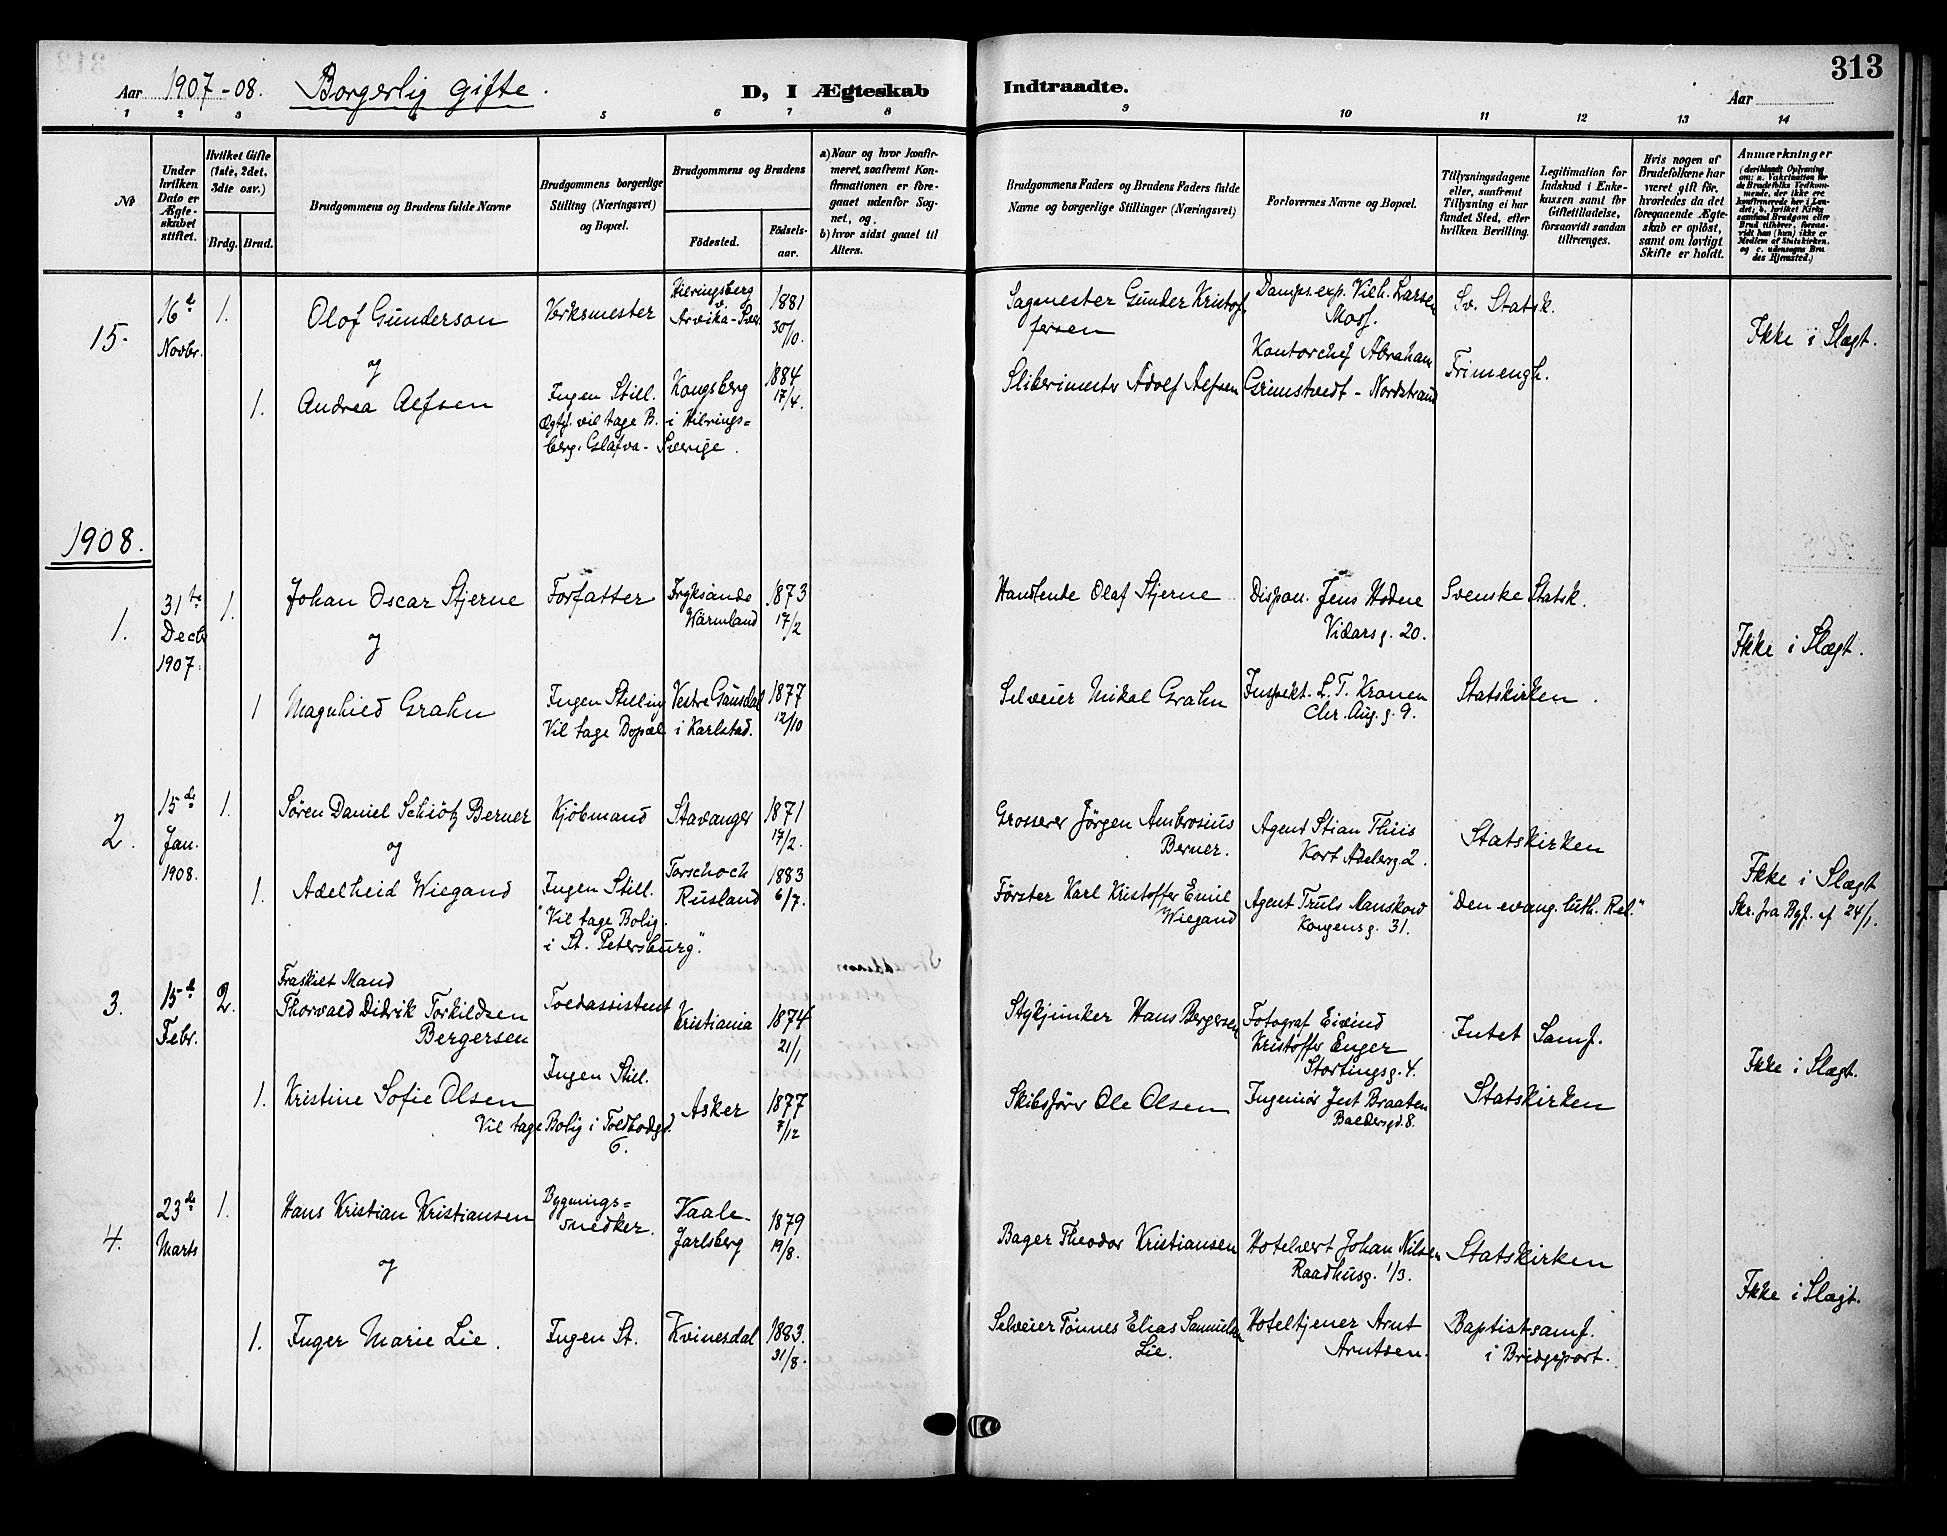 313
Aar 1907-08. Borgerlig gifte. D, I Ægteskab Indtraadte. Aar
1 2 3 4 5 6 7 8 9 10 11 12 13 14
No
Under hvilken Dato er Ægteskabet stiftet.
Hvilket Gifte (1ste, 2det, 3die osv.)
Brdg. Brud.
Brudgommens og Brudens fulde Navne
Brudgommens borgerlige Stilling (Næringsvei) og Bopæl.
Brudgommens og Brudens
Fødested. Fødsels-aar.
a) Naar og hvor konfirmeret, saafremt Konfirmationen er foregaaet udenfor Sognet, og.
b) hvor sidst gaaet til Alters.
Brudgommens Faders og Brudens Faders fulde Navne og borgerlige Stillinger (Næringsvei)
Forlovernes Navne og Bopæl.
Tillysningsdagene eller, saafremt Tillysning ei har fundet Sted, efter hvilken Bevilling.
Legitimation for Indskud i Enkekassen samt for Giftetilladelse, forsaavidt saadan tiltrænges.
Hvis nogen af Brudefolkene har været gift før, hvorledes da det foregaaende Ægteskab er opløst, samt om lovligt Skifte er holdt.
Anmærkninger
15. 16d Novbr. 1.
Olof Gunderson
Verksmester
Hilringsberg v. Arvika-Sver.
1881 30/10.
Sagmester Gunder Kristoffersen
Damps.exp. Vilh. Larsen Moss.
Sv. Statsk.
Ikke i Slægt.
og
1. Andrea Alfsen
Ingen Still.
Kongsberg
1884 17/4.
Ægtf. vil tage B. i Hilringsberg. Glafva-Sverige.
Sliberimester Adolf Alfsen
Kontorchef Abraham Grimstvedt - Nordstrand
Frimengh.
1908.
1. 31te Decb 1907. 1.
Johan Oscar Stjerne
Forfatter
Fryksande Värmland
1873 17/2
Handlende Olaf Stjerne
Dispon. Jens Hodne Vidarsg. 20.
Svenske Statsk.
Ikke i Slægt.
og
1 Magnhild Grahn
Ingen Stilling
Vestre Gausdal
1877 12/10
Vil tage Bopæl i Karlstad.
Selveier Mikal Grahn
Inspekt. L. T. Kranen Chr. Aug. g. 9.
Statskirken.
2. 15de Jan. 1908. 1.
Søren Daniel Schiötz Berner
Kjöbmand
Stavanger
1871 17/2.
Grosserer Jörgen Ambrosius Berner.
Agent Stian Thiis Kort Adelersg. 2.
Statskirken
Ikke i Slægt
og
1. Adelheid Wiegand
Ingen Still.
"Vil tage Bolig. i St. Petersburg".
Torschoch Rusland
1883 6/7.
Förster Karl Kristoffer Emil Wiegand
Agent Truls Manskow Kongensg. 31.
"Den evang. luth. Rel."
Skr. fra Bgf. af 24/1.
3. 15d Febr. 2.
Fraskilt Mand
Thorvald Didrik Torkildsen Bergersen
Toldassistent
Kristiania
1874 21/1
Stykjunker Hans Bergersen
Fotograf Eivind Kristoffer Enger Stortingsg. 4.
Intet Samf.
Ikke i Slægt.
1. Kristine Sofie Olsen
Ingen Still.
Asker
1877 7/12
Vil tage Bolig i Toldbodgd. 6.
Skibsförer Ole Olsen
Ingeniör Jest Braaten Baldersgd. 8.
Statskirken
4. 23de Marts 1.
Hans Kristian Kristiansen
Bygningssnedker.
Vaale. Jarlsberg
1879 19/8.
Bager Theodor Kristiansen
Hotelvert Johan Nilsen Raadhusg. 1/3.
Statskirken
Ikke i Slægt.
og
1. Inger Marie Lie.
Ingen St.
Kvinesdal
1883. 31/8.
Selveier Tönnes Elias Samuelsen Lie.
Hoteltjener Arnt Arntsen.
Baptistsamf. i Bridgeport.